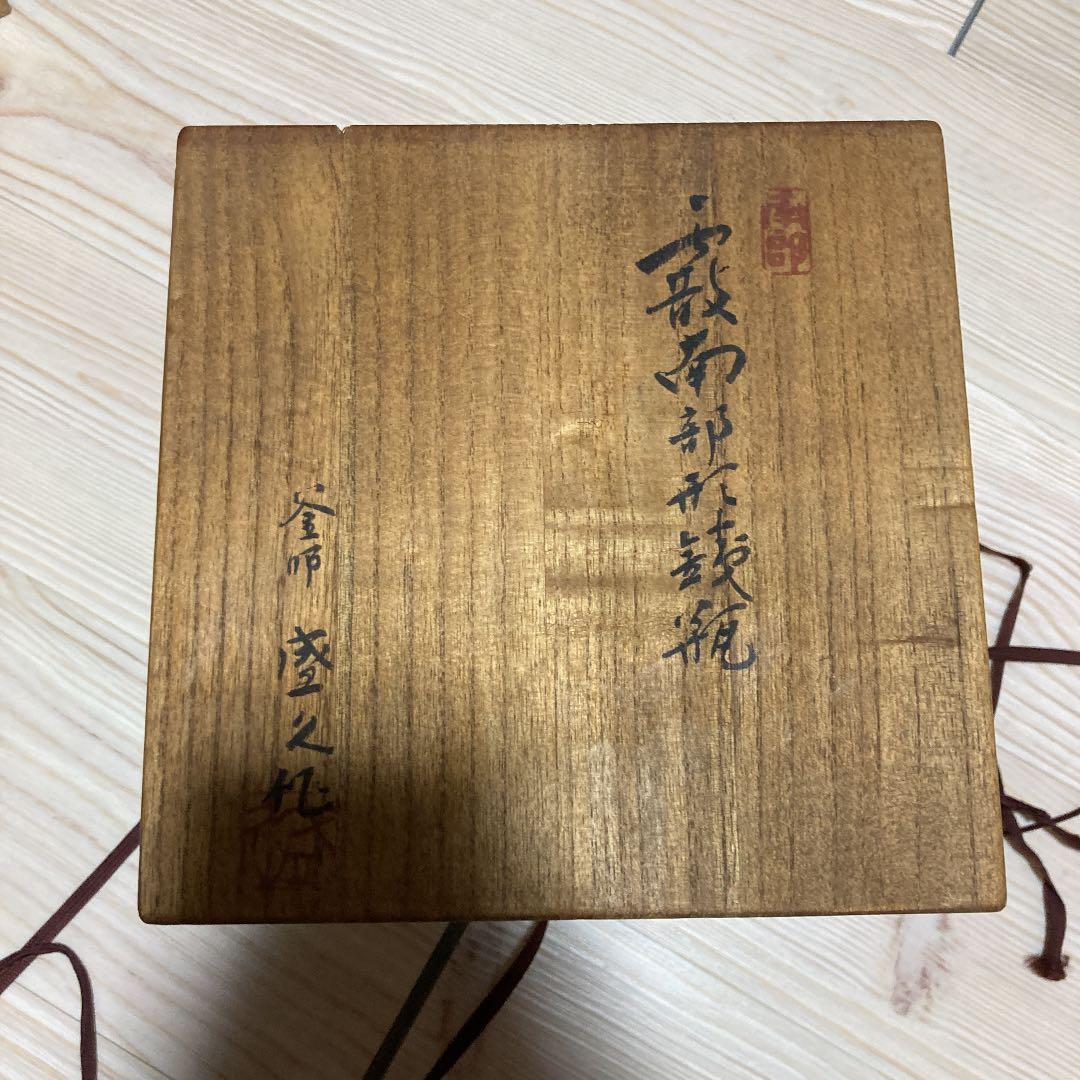 霰南部形鉄瓶
釜師 盛久作